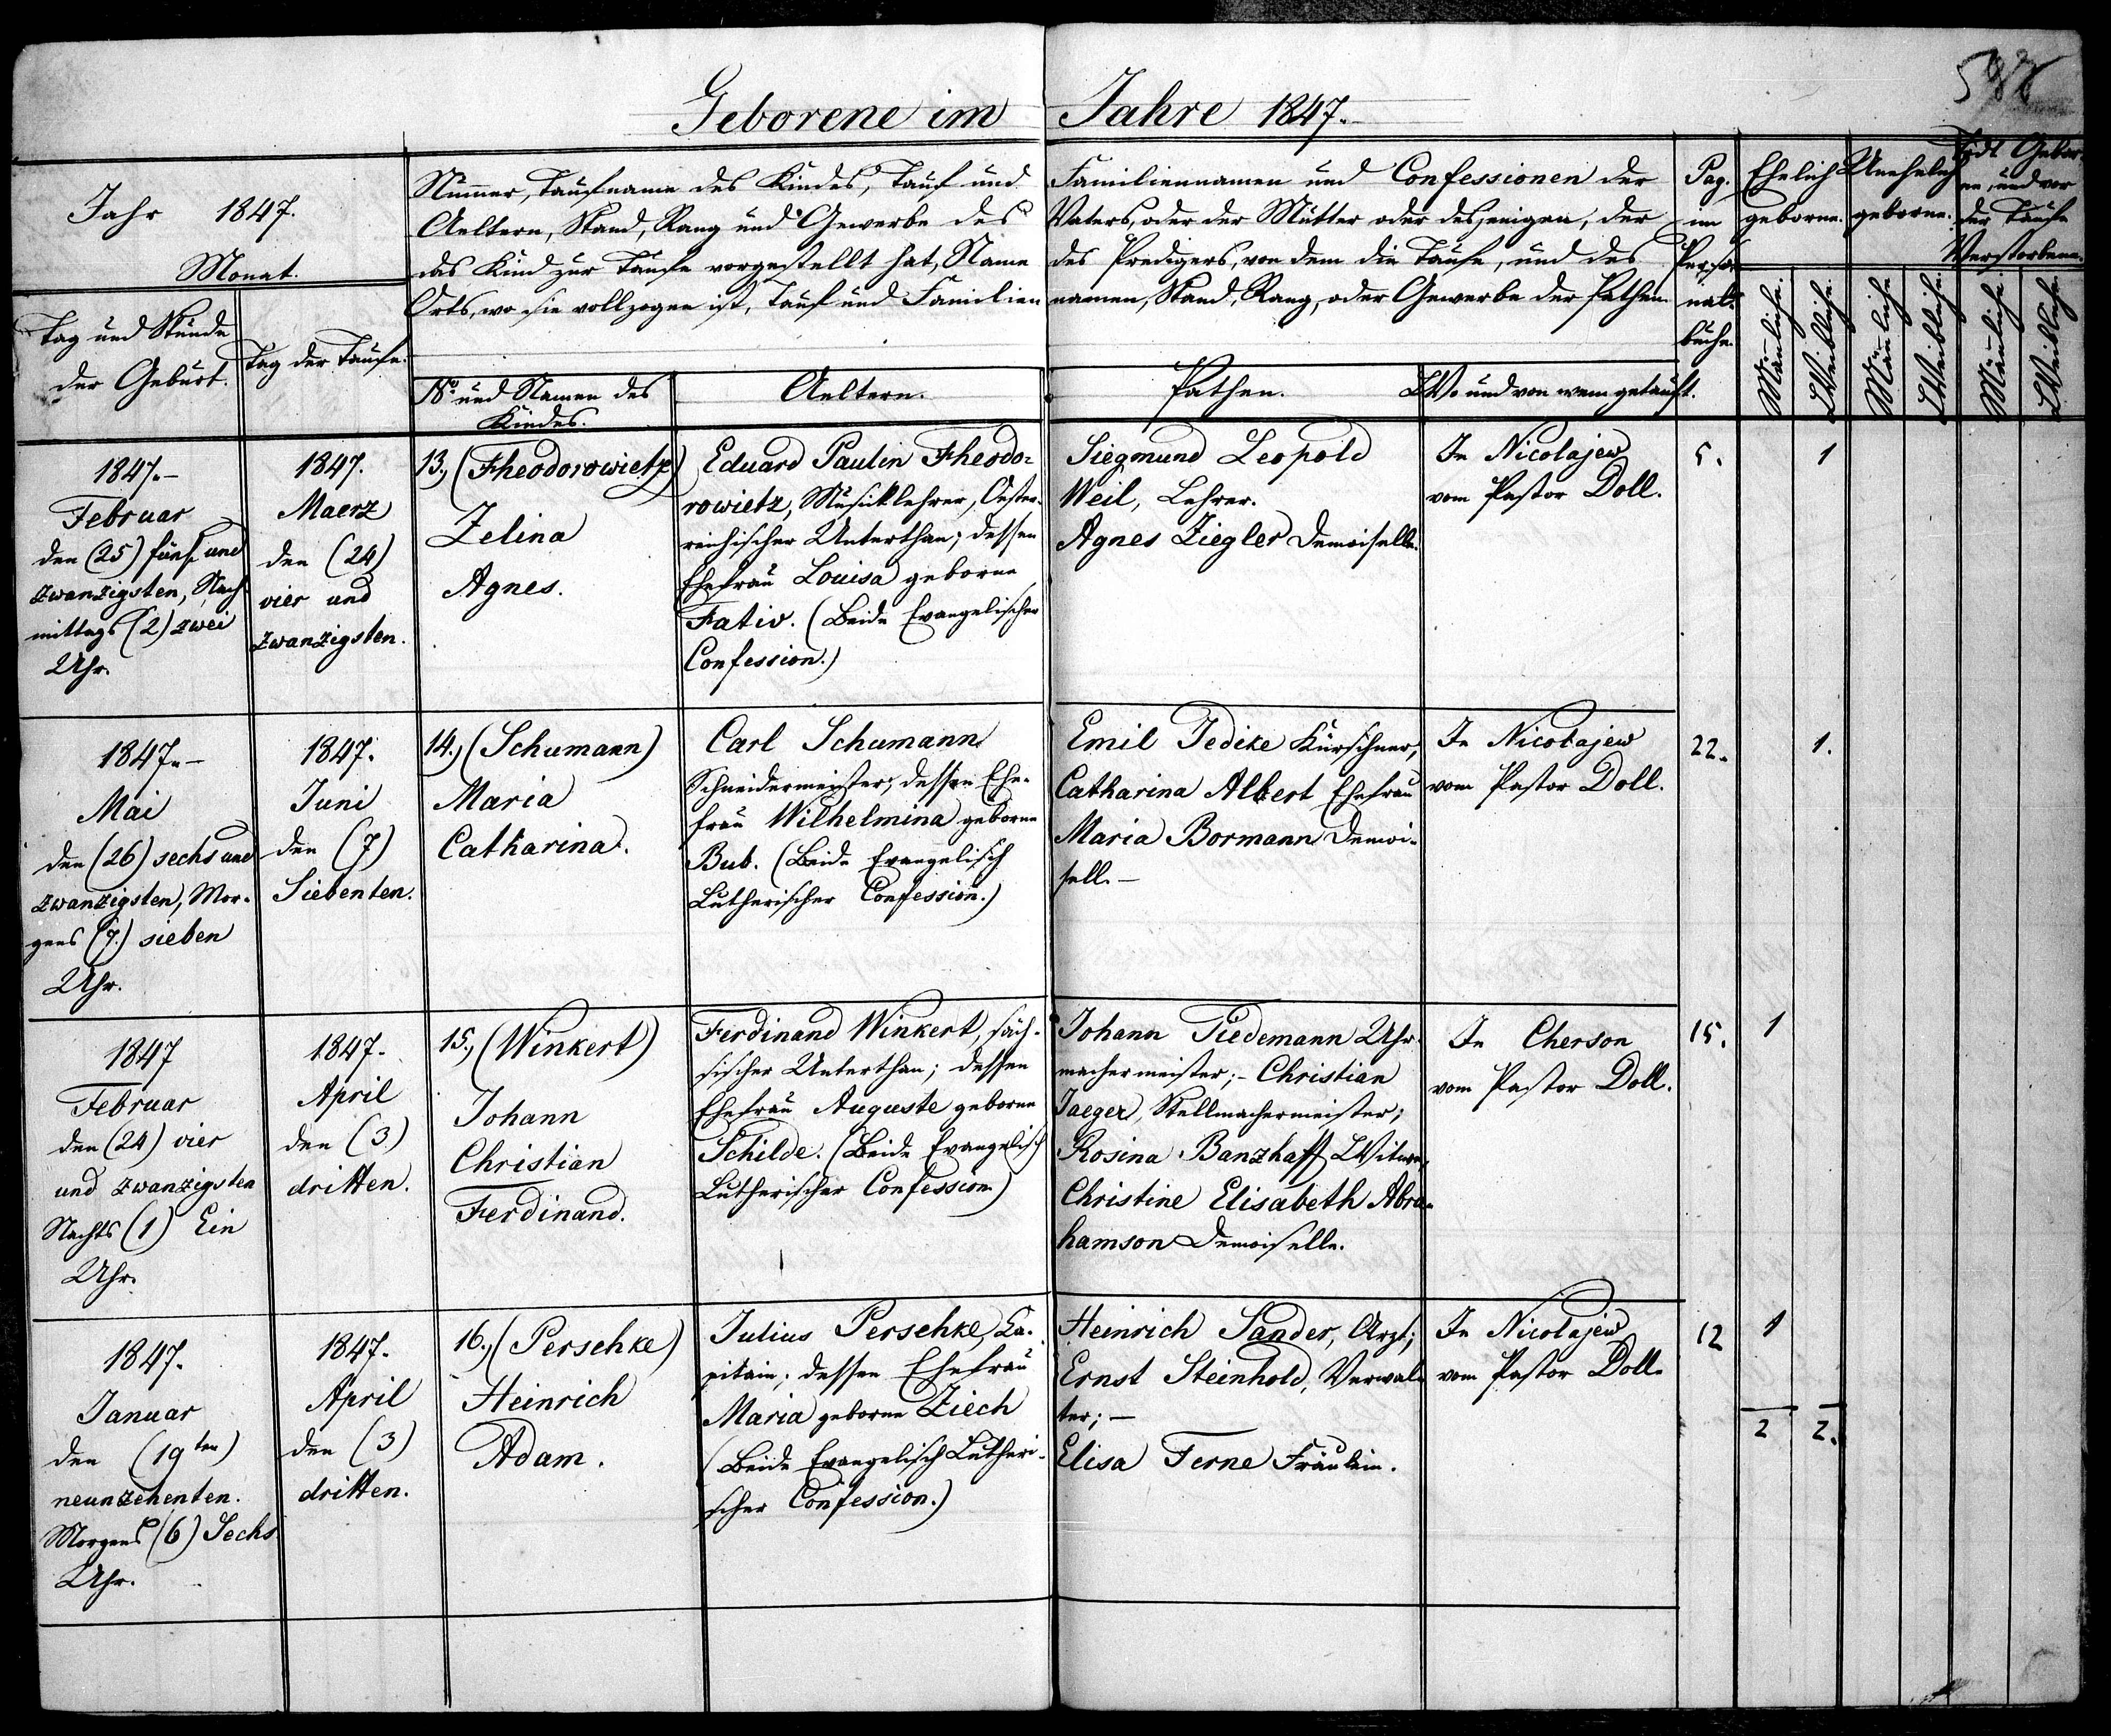 588
Geborene im Jahre 1847.
Jahr 1847.
Monat.
Tag und Stunde
der Geburt.
Tag der Taufe.
Numer, Taufname des Kindes, Tauf und Familiennamen und Confessionen der
Aeltern, Stand, Rang und Gewerbe des Vaters, oder der Mutter oder desjenigen, der
das Kind zur Taufe vorgestellt hat, Name des Predigers, von dem die Taufe, und des
Orts, wo sie vollzogen ist, Tauf und Familien namen, Stand, Rang, oder Gewerbe der Pathen
No und Namen des
Kindes.
Aeltern.
Pathen.
Wo und von wem getauft.
Pag.
im
Perso-
nal-
buche.
Ehelich
geborne.
Unehelich
geborne.
Todt Gebor-
ne, und vor
der Taufe
Verstorbene.
Mänliche.
Weibliche.
Mänliche
Weibliche.
Mänliche
Weibliche.
1847.-
Februar
den (25) fünf und
zwanzigsten, Nach-
mittags (2) zwei
Uhr.
1847.
Maerz
den (24)
vier und
zwanzigsten.
13., (Theodorowietz)
Zelina
Agnes.
Eduard Paulin Theodo-
rowietz, Musiklehrer, Oester-
reichischer Unterthan; dessen
Ehefrau Louisa geborne
Fativ. (Beide Evangelischer
Confession.)
Siegmund Leopold
Weil, Lehrer.
Agnes Ziegler Demoiselle.
In Nicolajew
vom Pastor Doll.
5.
1
1847.-
Mai
den (26) sechs und
zwanzigsten, Mor-
gens (7.) sieben
Uhr.
1847.
Juni
den (7)
Siebenten.
14., (Schumann)
Maria
Catharina.
Carl Schumann
Schneidermeister; dessen Ehe-
frau Wilhelmina geborne
Bub. (Beide Evangelisch
Lutherischer Confession.)
Emil Tedike Kürschner,
Catharina Albert Ehefrau
Maria Bormann Demoi-
sell. -
In Nicolajew
vom Pastor Doll.
22.
1.
1847
Februar
den (24) vier
und zwanzigsten
Nachts (1) Ein
Uhr.
1847.
April
den (3)
dritten.
15., (Winkert)
Johann
Christian
Ferdinand.
Ferdinand Winkert, säch-
sischer Unterthan; dessen
Ehefrau Auguste geborne
Schilde. (Beide Evangelisch
Lutherischer Confession)
Johann Tiedemann Uhr-
machermeister; - Christian
Jaeger, Stellmachermeister;
Rosina Banzhaff Witwe,
Christine Elisabeth Abra-
hamson Demoiselle.
In Cherson
vom Pastor Doll.
15.
1
1847.
Januar
den (19ten)
neunzehenten.
Morgens (6) Sechs
Uhr.
1847.
April
den (3)
dritten.
16., (Perschke)
Heinrich
Adam.
Julius Perschke, Ca-
pitain; dessen Ehefrau
Maria geborne Ziech
(Beide Evangelisch Lutheri-
scher Confession.)
Heinrich Sander, Arzt;
Ernst Steinhold, Verwal-
ter; -
Elisa Ferne Fräulein.
In Nicolajew
vom Pastor Doll.
12
1
2 2.